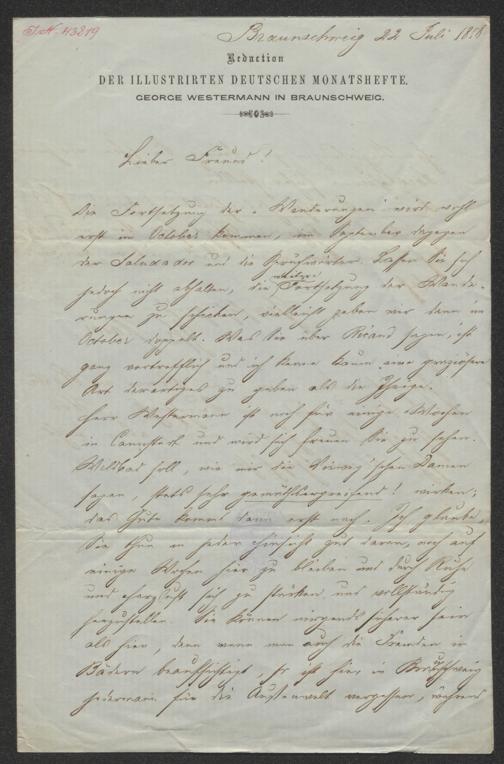 J.N. 43219
Braunschweig 22 Juli 1878
Redaction
DER ILLUSTRIRTEN DEUTSCHEN MONATSHEFTE.
GEORGE WESTERMANN IN BRAUNSCHWEIG.
Lieber Freund!
Die Fortsetzung der "Wanderungen" wird wohl
erst im October kommen, im September dagegen
der Saladador und die. Lassen Sie sich
jedoch nicht abhalten, die weitere Fortsetzung der Wande-
rungen zu schicken, vielleicht geben wir dann im
October doppelt. Was Sie über sagen, ist
ganz vortrefflich und ich kenne kaum eine graziösere
Art derartiges zu geben als die Ihrige.
Herr Westermann ist noch für einige Wochen
in Cannstatt und wird sich freuen Sie zu sehen.
Wildbad soll, wie mir die Vieweg'schen Damen
sagen, stets sehr wirken;
das Gute kommt dann erst nach. Ich glaube
Sie thun in jeder Hinsicht gut daran, noch auf
einige Wochen hier zu bleiben und durch Ruhe
und sich zu stärken und vollständig
herzustellen. Sie können nirgends sicherer sein
als hier, denn wenn man auch die Fremden in
Bädern beaufsichtigt, so ist hier in Braunschweig
jedermann für die Außenwelt vergessen, während